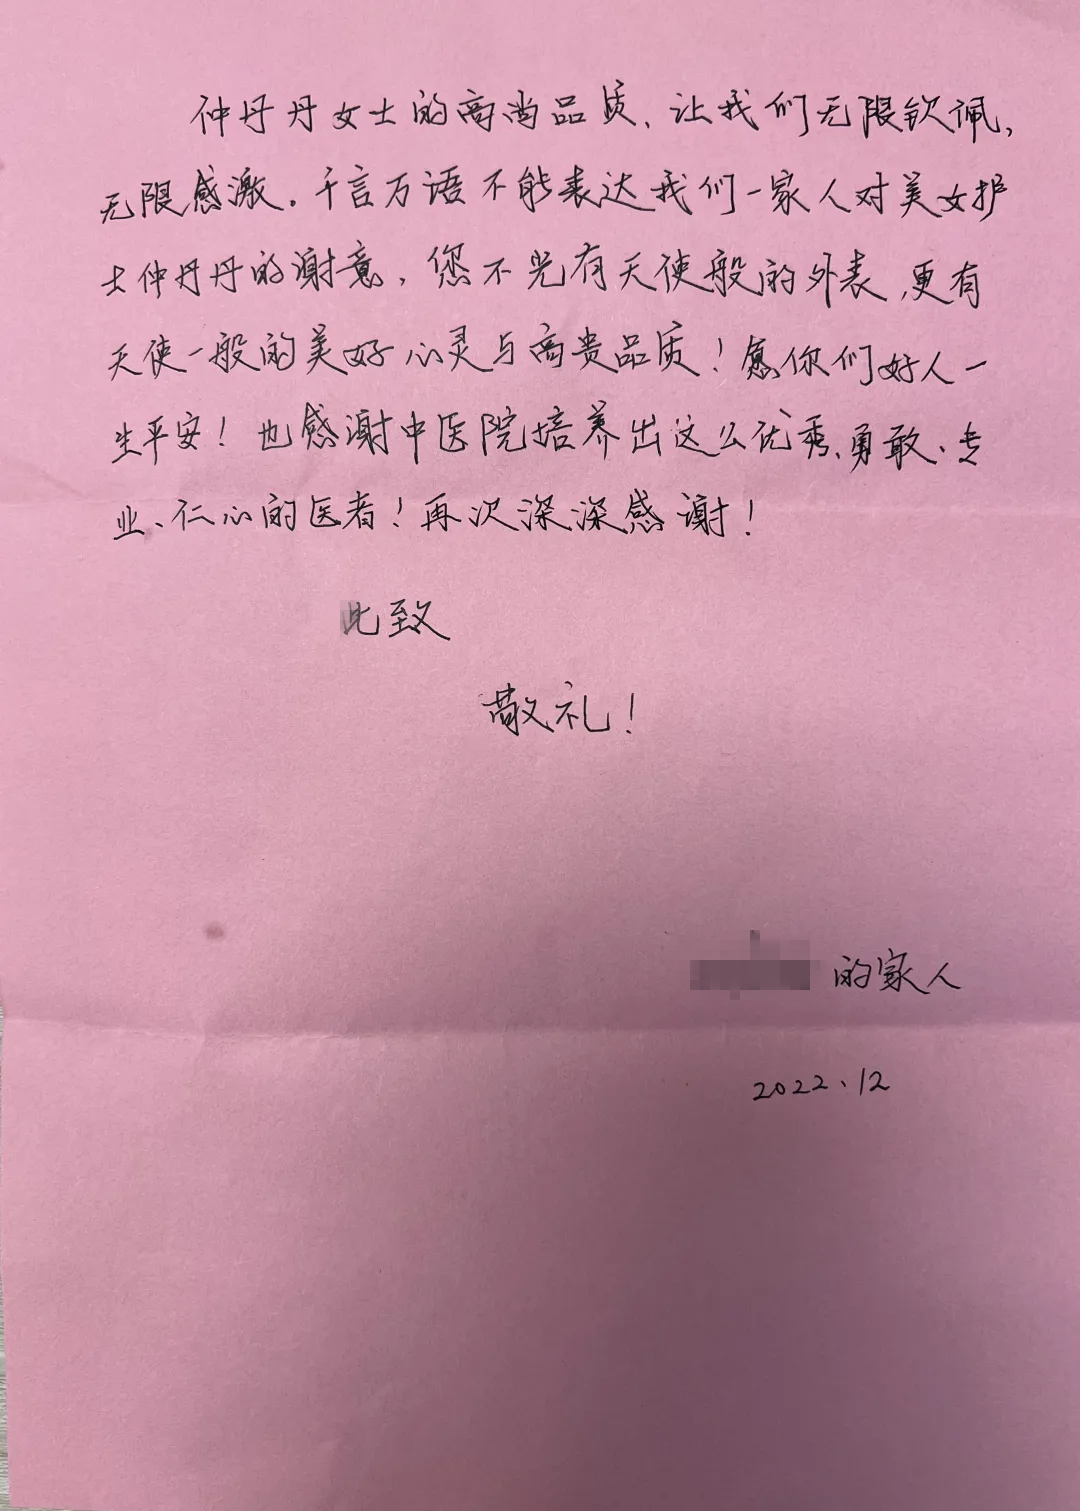 仲丹丹女士的高尚品质、让我们无限钦佩，
无限感激。千言万语不能表达我们一家人对美女护
士仲丹丹的谢意，您不光有天使般的外表，更有
天使一般的美好心灵与高贵品质！愿你们好人一
生平安！也感谢中医院培养出这么优秀、勇敢、专
业、仁心的医者！再次深深感谢！
此致
敬礼！
的家人
2022、12